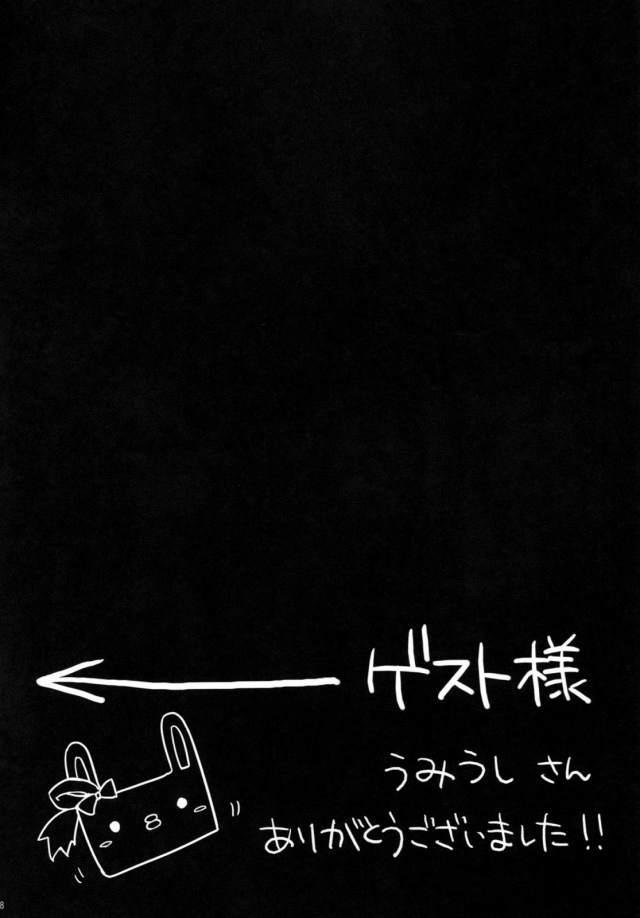 ゲスト様
うみうし さん
ありがとうございました!!
8